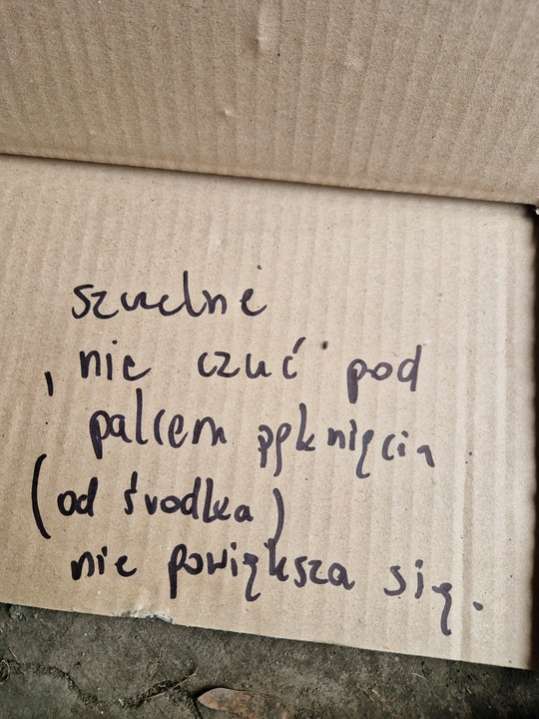 szczelne
, nie czuć pod
palcem pęknięcia
(od środka)
nie powiększa się.